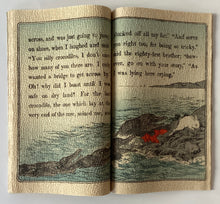 across, and was just going to jump
on shore, when I laughed and said,
"You silly crocodile, I don't care
how many of you there are. I only
wanted a bridge to get across by."
Oh! why did I boast until I was
safe on dry land? For the last
crocodile, the one which lay at the
very end of the row, seized me, and
plucked off all my fur." "And serve
you right too, for being so tricky,"
said the eighty-first brother; "how-
ever, go on with your story." "As
I was lying here crying,"